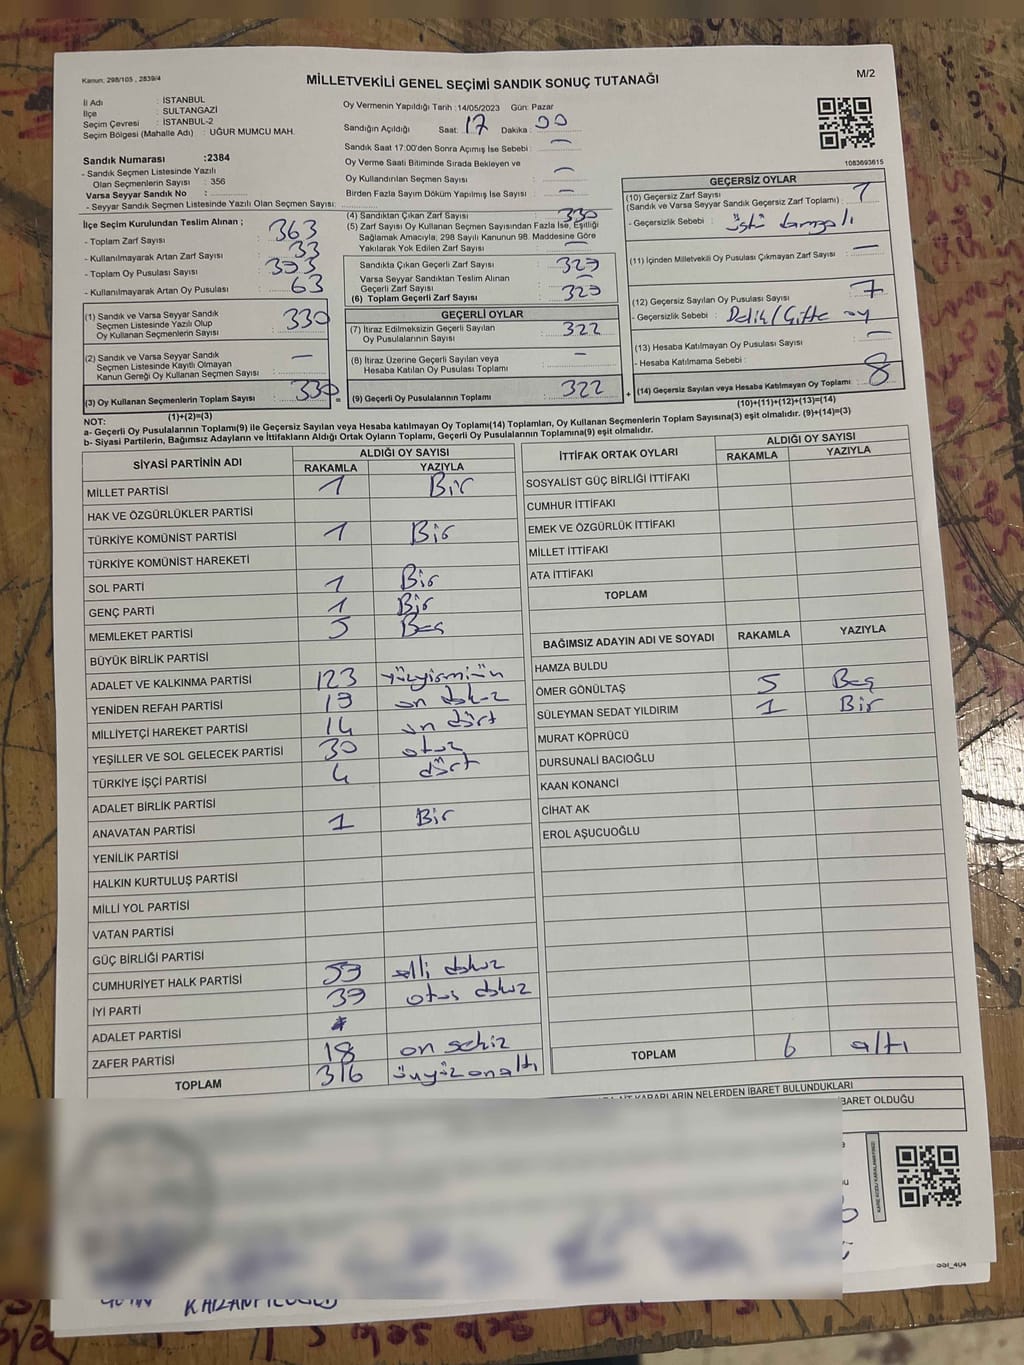 Kanun, 298/105 , 2839/4
MİLLETVEKİLİ GENEL SEÇİMİ SANDIK SONUÇ TUTANAĞI
M/2
İl Adı : İSTANBUL
İlçe : SULTANGAZİ
Seçim Çevresi : İSTANBUL-2
Seçim Bölgesi (Mahalle Adı) : UĞUR MUMCU MAH.
Sandık Numarası :2384
- Sandık Seçmen Listesinde Yazılı
Olan Seçmenlerin Sayısı : 356
Varsa Seyyar Sandık No :
- Seyyar Sandık Seçmen Listesinde Yazılı Olan Seçmen Sayısı:
Oy Vermenin Yapıldığı Tarih :14/05/2023 Gün: Pazar
Sandığın Açıldığı Saat: 17 Dakika: 00
Sandık Saat 17:00'den Sonra Açılmış İse Sebebi : —
Oy Verme Saati Bitiminde Sırada Bekleyen ve
Oy Kullandırılan Seçmen Sayısı : —
Birden Fazla Sayım Döküm Yapılmış İse Sayısı : —
1083693615
İlçe Seçim Kurulundan Teslim Alınan ;
- Toplam Zarf Sayısı : 363
- Kullanılmayarak Artan Zarf Sayısı : 33
- Toplam Oy Pusulası Sayısı : 393
- Kullanılmayarak Artan Oy Pusulası : 63
(1) Sandık ve Varsa Seyyar Sandık
Seçmen Listesinde Yazılı Olup
Oy Kullanan Seçmenlerin Sayısı : 330
(2) Sandık ve Varsa Seyyar Sandık
Seçmen Listesinde Kaydı Olmayan
Kanun Gereği Oy Kullanan Seçmen Sayısı : —
(3) Oy Kullanan Seçmenlerin Toplam Sayısı : 330
(1)+(2)=(3)
(4) Sandıktan Çıkan Zarf Sayısı : 330
(5) Zarf Sayısı Oy Kullanan Seçmen Sayısından Fazla İse, Eşitliği
Sağlamak Amacıyla, 298 Sayılı Kanunun 98. Maddesine Göre
Yakılarak Yok Edilen Zarf Sayısı : —
Sandıkta Çıkan Geçerli Zarf Sayısı : 329
Varsa Seyyar Sandıktan Teslim Alınan
Geçerli Zarf Sayısı : —
(6) Toplam Geçerli Zarf Sayısı : 329
GEÇERLİ OYLAR
(7) İtiraz Edilmeksizin Geçerli Sayılan
Oy Pusulalarının Sayısı : 322
(8) İtiraz Üzerine Geçerli Sayılan veya
Hesaba Katılan Oy Pusulası Toplamı : —
(9) Geçerli Oy Pusulalarının Toplamı : 322
GEÇERSİZ OYLAR
(10) Geçersiz Zarf Sayısı
(Sandık ve Varsa Seyyar Sandık Geçersiz Zarf Toplamı) : 1
- Geçersizlik Sebebi : üstü damgalı
(11) İçinden Milletvekili Oy Pusulası Çıkmayan Zarf Sayısı : —
(12) Geçersiz Sayılan Oy Pusulası Sayısı : 7
- Geçersizlik Sebebi : Delik/Çifte oy
(13) Hesaba Katılmayan Oy Pusulası Sayısı : —
- Hesaba Katılmama Sebebi :
(14) Geçersiz Sayılan veya Hesaba Katılmayan Oy Toplamı : 8
(10)+(11)+(12)+(13)=(14)
NOT:
a- Geçerli Oy Pusulalarının Toplamı(9) ile Geçersiz Sayılan veya Hesaba katılmayan Oy Toplamı(14) Toplamları, Oy Kullanan Seçmenlerin Toplam Sayısına(3) eşit olmalıdır. (9)+(14)=(3)
b- Siyasi Partilerin, Bağımsız Adayların ve İttifakların Aldığı Ortak Oyların Toplamı, Geçerli Oy Pusulalarının Toplamına(9) eşit olmalıdır.
SİYASİ PARTİNİN ADI ALDIĞI OY SAYISI
RAKAMLA YAZIYLA
MİLLET PARTİSİ 1 Bir
HAK VE ÖZGÜRLÜKLER PARTİSİ
TÜRKİYE KOMÜNİST PARTİSİ 1 Bir
TÜRKİYE KOMÜNİST HAREKETİ
SOL PARTİ 1 Bir
GENÇ PARTİ 1 Bir
MEMLEKET PARTİSİ 5 Beş
BÜYÜK BİRLİK PARTİSİ
ADALET VE KALKINMA PARTİSİ 123 yüzyirmiüç
YENİDEN REFAH PARTİSİ 19 on dokuz
MİLLİYETÇİ HAREKET PARTİSİ 14 on dört
YEŞİLLER VE SOL GELECEK PARTİSİ 30 otuz
TÜRKİYE İŞÇİ PARTİSİ 4 dört
ADALET BİRLİK PARTİSİ
ANAVATAN PARTİSİ 1 Bir
YENİLİK PARTİSİ
HALKIN KURTULUŞ PARTİSİ
MİLLİ YOL PARTİSİ
VATAN PARTİSİ
GÜÇ BİRLİĞİ PARTİSİ
CUMHURİYET HALK PARTİSİ 59 elli dokuz
İYİ PARTİ 39 otuz dokuz
ADALET PARTİSİ
ZAFER PARTİSİ 18 on sekiz
TOPLAM 316 üçyüzonaltı
İTTİFAK ORTAK OYLARI ALDIĞI OY SAYISI
RAKAMLA YAZIYLA
SOSYALİST GÜÇ BİRLİĞİ İTTİFAKI
CUMHUR İTTİFAKI
EMEK VE ÖZGÜRLÜK İTTİFAKI
MİLLET İTTİFAKI
ATA İTTİFAKI
TOPLAM
BAĞIMSIZ ADAYIN ADI VE SOYADI RAKAMLA YAZIYLA
HAMZA BULDU
ÖMER GÖNÜLTAŞ 5 Beş
SÜLEYMAN SEDAT YILDIRIM 1 Bir
MURAT KÖPRÜCÜ
DURSUNALİ BACIOĞLU
KAAN KONANCİ
CİHAT AK
EROL AŞUCUOĞLU
TOPLAM 6 altı
KARARLARIN NELERDEN İBARET BULUNDUKLARI
İBARET OLDUĞU